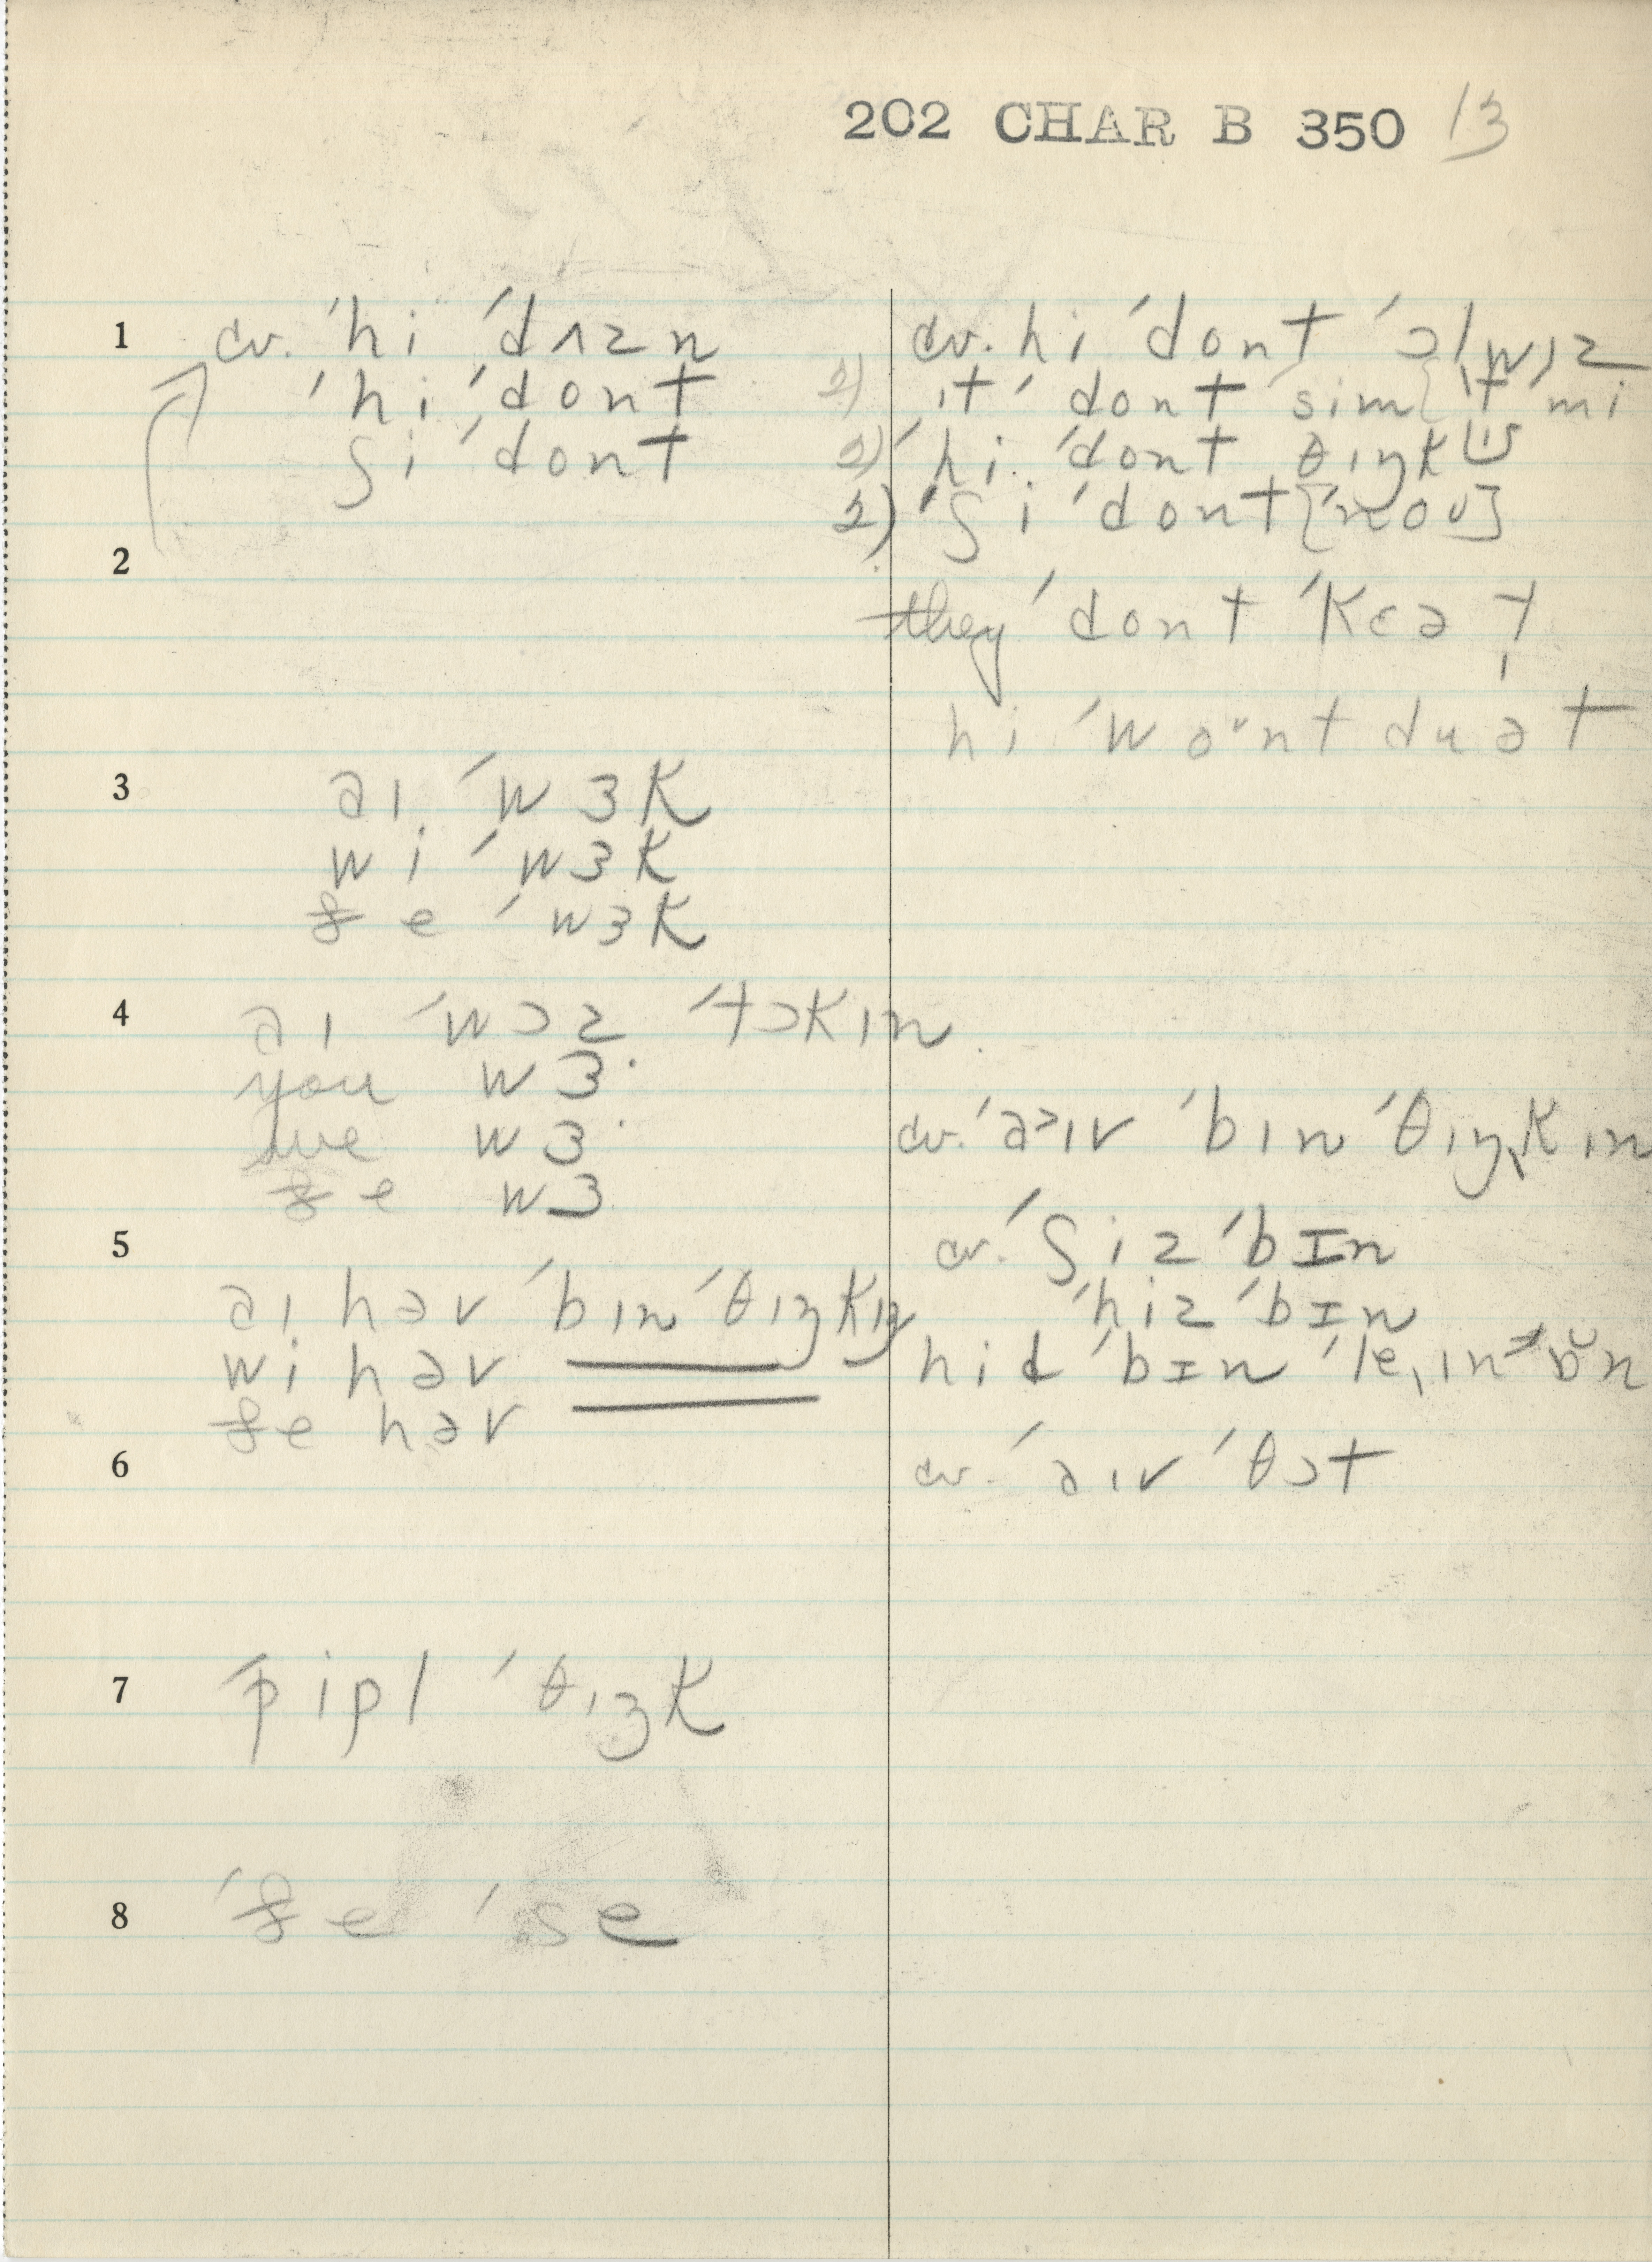 202 CHAR B 350 13
1 cv. ˈhi ˈdʌzn
ˈhi ˈdont
ʃi ˈdont
2
3 əɪ ˈwɜk
wi ˈwɜk
ðe ˈwɜk
4 əɪ ˈwɔz ˈtɔkɪn
you wɜ·
we wɜ·
ðe wɜ
5
əɪ həv ˈbɪn ˈθɪŋkɪŋ
wi həv
ðe həv
6
7 ˈpipl ˈθɪŋk
8 ˈðe ˈse
cv. hi ˈdont ˈɔlwɪz
2) ɪt ˈdont sim{ˈt mi
2) ˈhi ˈdont θɪŋk
2) ˈʃi ˈdont [noʊ]
they ˈdont ˈkɛə
hi ˈwoᵘnt du ət
cv. ˈə˃ɪv ˈbɪn ˈθɪŋkɪn
cv. ˈʃiz ˈbɪn
ˈhiz ˈbɪn
hid ˈbɪn ˈle,ɪn
cv. ˈəɪv ˈθɔt